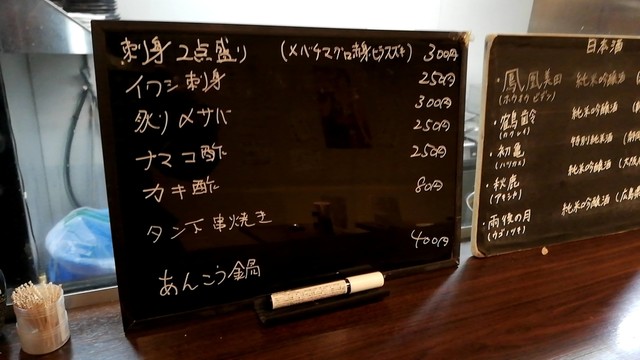 刺身 2点盛り (メバチマグロ赤身ヒラスズキ) 300円
イワシ刺身 250円
炙り〆サバ 300円
ナマコ酢 250円
カキ酢 250円
タン下串焼き 80円
あんこう鍋 400円
日本酒
・鳳凰美田 純米吟醸酒
(ホウオウビデン)
・鶴齢 純米吟醸酒
(カクレイ)
・初亀 特別純米酒
(ハツカメ)
・秋鹿 純米吟醸酒 (大阪
(アキシカ)
・雨後の月 純米吟醸酒 (広島
(ウゴノツキ)